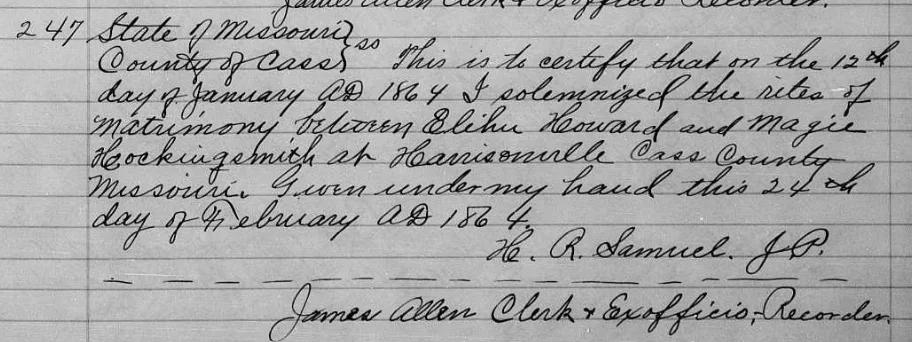 James Allen Clerk & Exofficio Recorder.
247 State of Missouri }
County of Cass } ss This is to certify that on the 12th
day of January AD 1864 I solemnized the rites of
Matrimony between Elihu Howard and Magie
Hockingsmith at Harrisonville Cass County
Missouri. Given under my hand this 24th
day of February AD 1864.
H. R. Samuel. J P.
James Allen Clerk & Exofficio, Recorder.